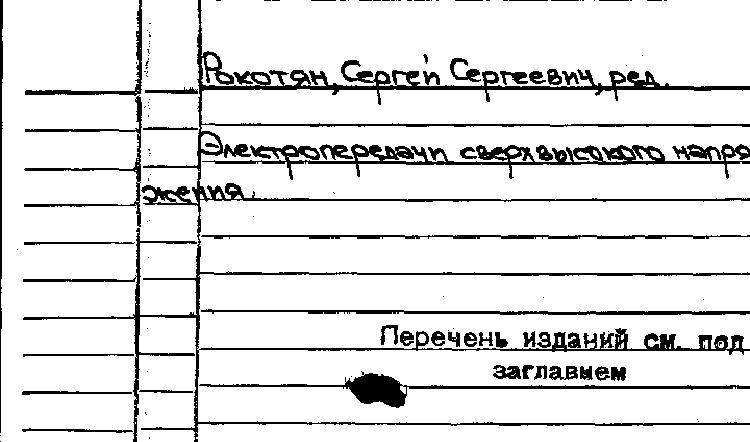 Рокотян, Сергей Сергеевич, ред.
Электропередачи сверхвысокого напря
жения.
Перечень изданий см. под
заглавием